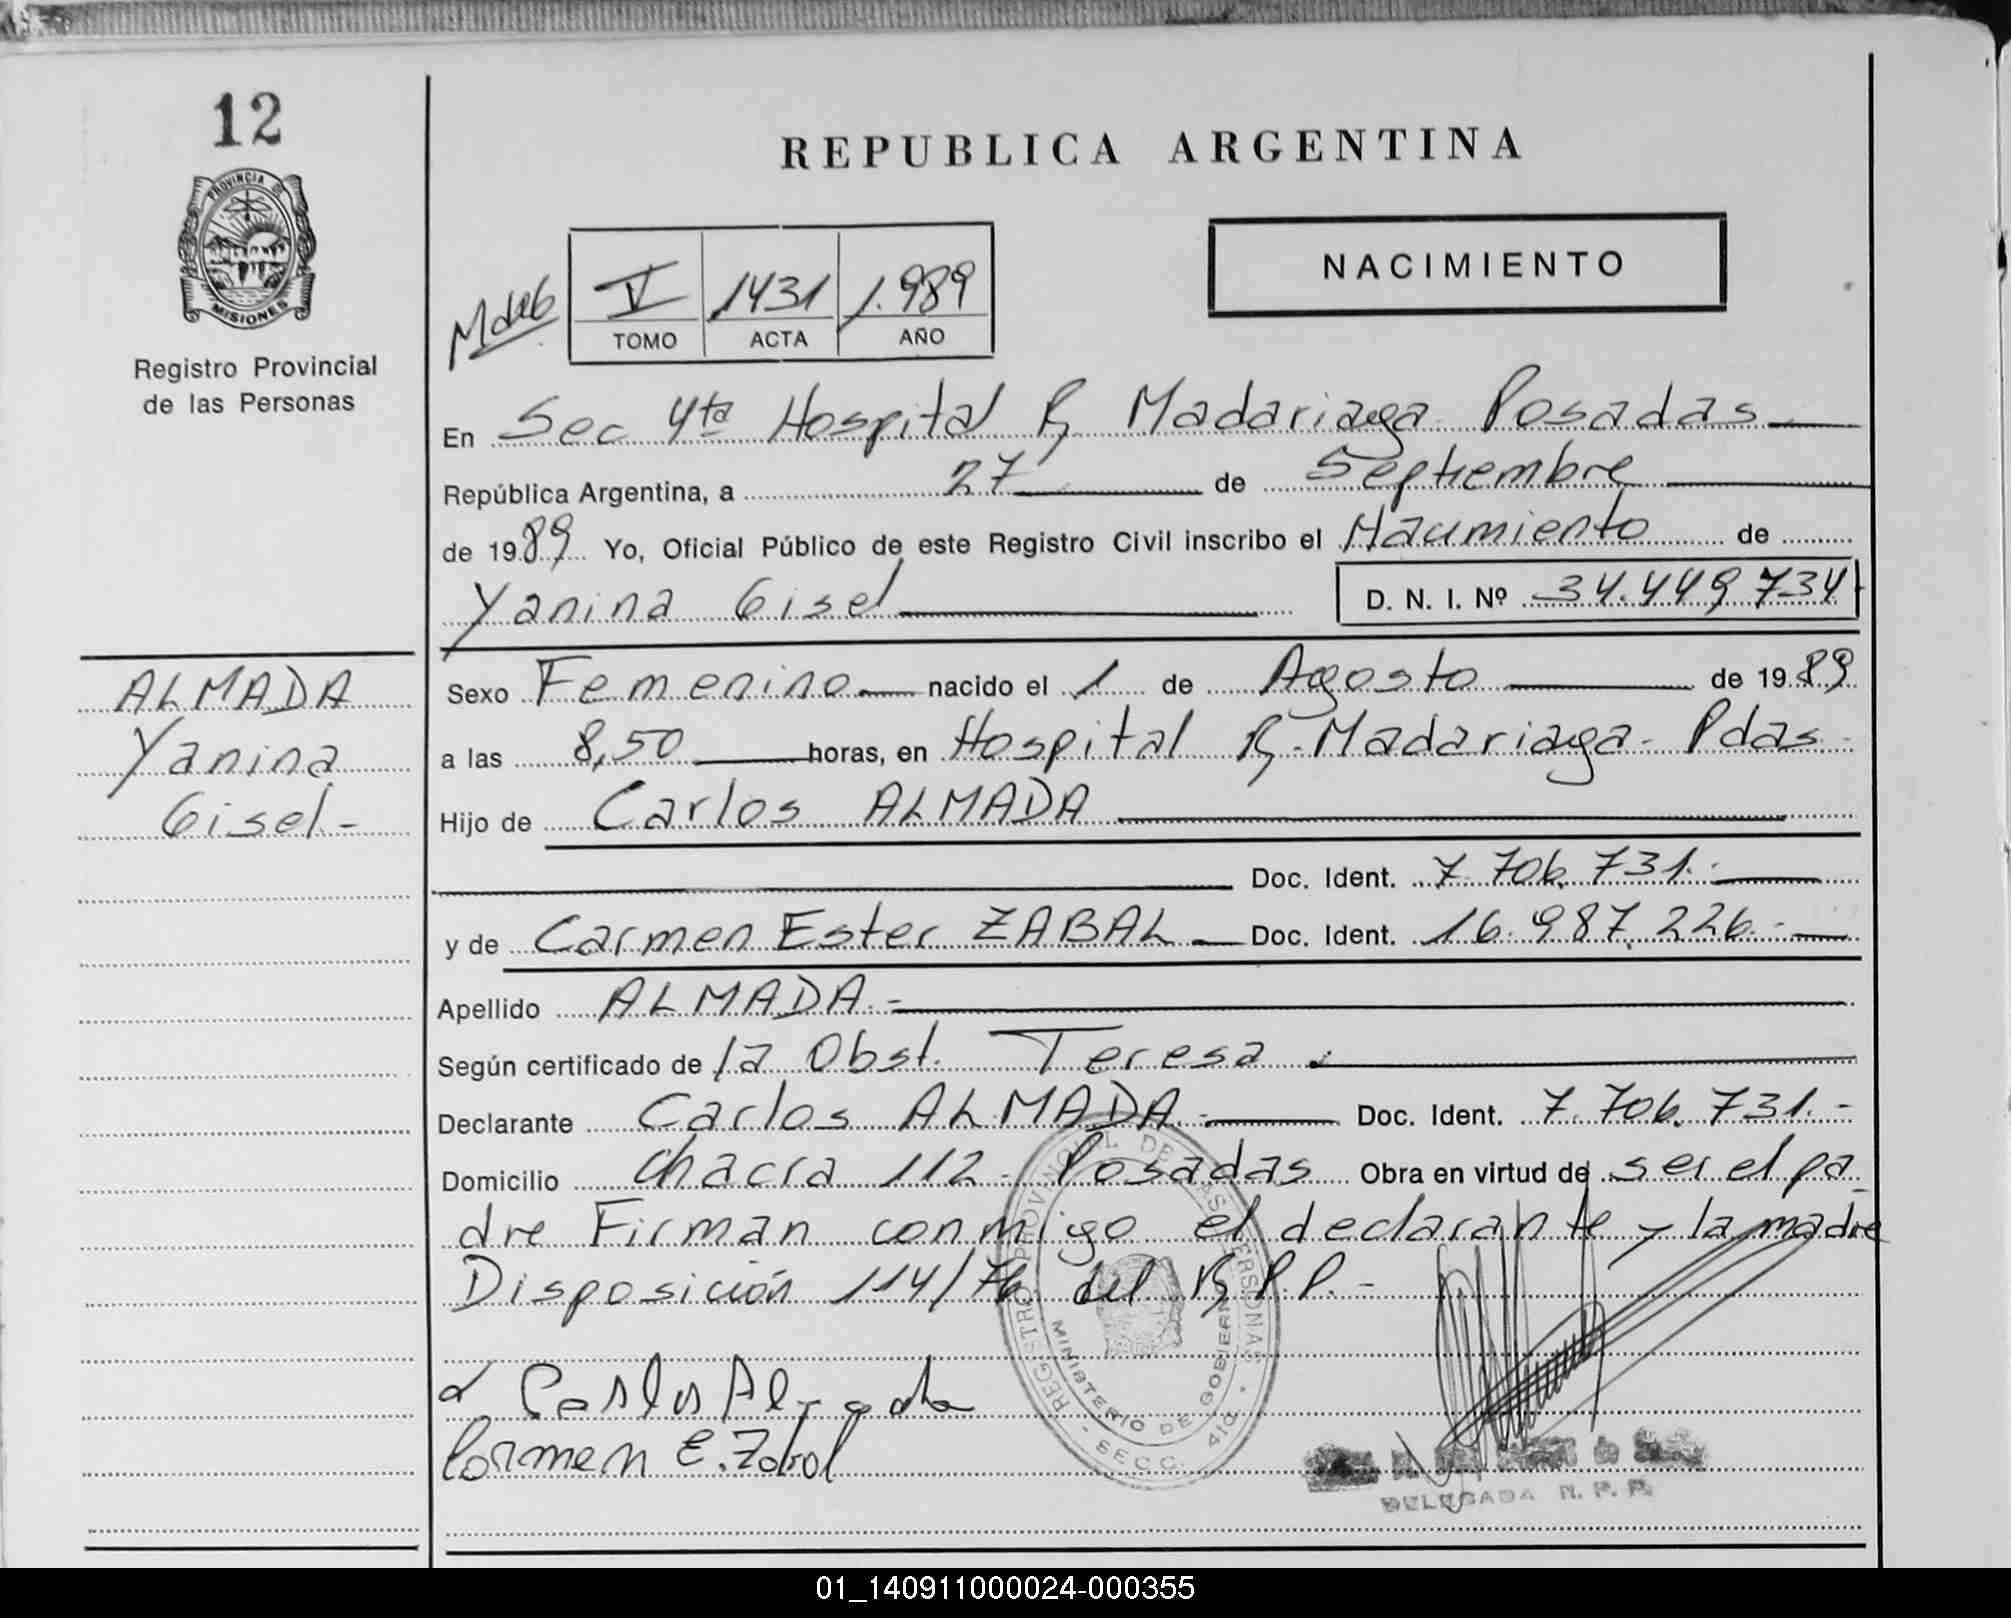 12
PROVINCIA DE
MISIONES
Registro Provincial
de las Personas
REPUBLICA ARGENTINA
V 1431 1.989
TOMO ACTA AÑO
NACIMIENTO
En Sec 4ta Hospital R. Madariaga Posadas
República Argentina, a 27 de Septiembre
de 1989 Yo, Oficial Público de este Registro Civil inscribo el Nacimiento de
Yanina Gisel D. N. I. Nº 34.449 734
ALMADA
Yanina
Gisel-
Sexo Femenino nacido el 1 de Agosto de 1989
a las 8,50 horas, en Hospital R. Madariaga - Pdas -
Hijo de Carlos ALMADA
Doc. Ident. 7.706.731.-
y de Carmen Ester ZABAL Doc. Ident. 16.987.226.-
Apellido ALMADA.-
Según certificado de la Obst. Teresa.
Declarante Carlos ALMADA.- Doc. Ident. 7.706.731.-
Domicilio Chacra 112 - Posadas Obra en virtud de ser el pa
dre Firman conmigo el declarante y la madre
Disposición 114/76 del R.P.P.-
Carlos Almada
Carmen E. Zabal
REGISTRO PROVINCIAL DE LAS PERSONAS
MINISTERIO DE GOBIERNO
SECC. 4ta.
DELEGADA R. P. P.
01_140911000024-000355